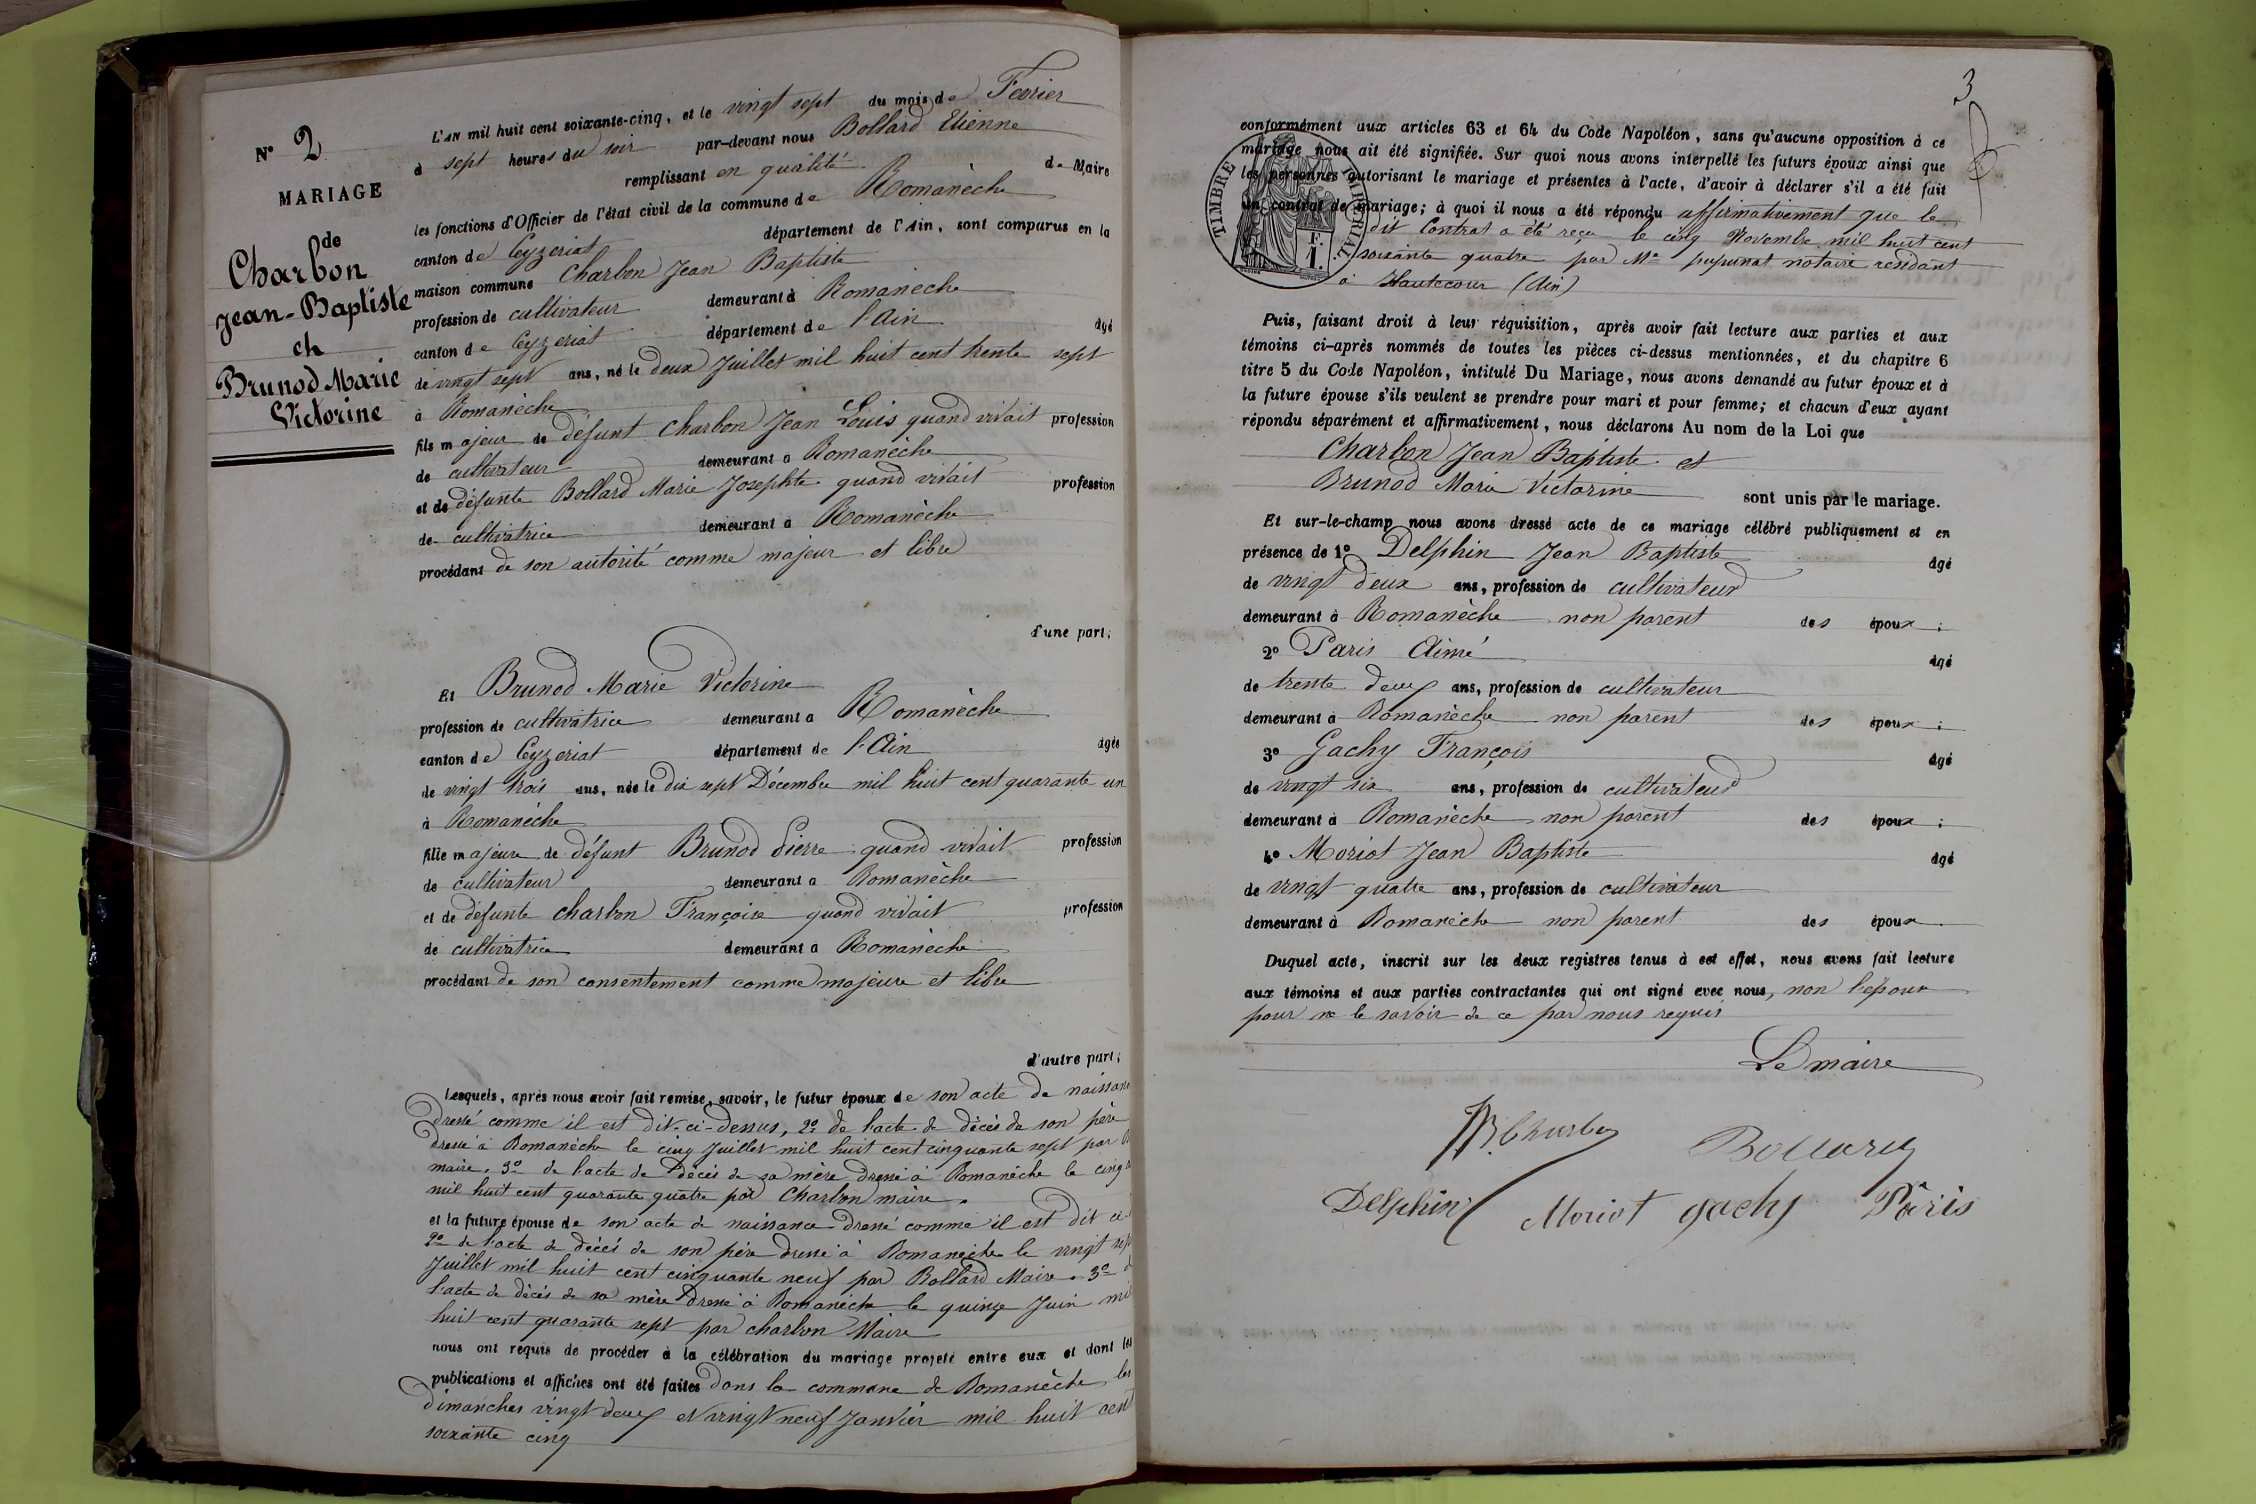 N° 2
MARIAGE
de
Charbon
Jean-Baptiste
et
Brunod Marie
Victorine
L'AN mil huit cent soixante-cinq, et le vingt sept du mois de Fevrier
à sept heures du soir par-devant nous Bollard Etienne
remplissant en qualité de Maire
les fonctions d'Officier de l'état civil de la commune de Romanèche
canton de Ceyzeriat département de l'Ain, sont comparus en la
maison commune Charbon Jean Baptiste
profession de cultivateur demeurant à Romanèche
canton de Ceyzeriat département de l'Ain âgé
de vingt sept ans, né le deux Juillet mil huit cent trente sept
à Romanèche
fils majeur de défunt Charbon Jean Louis quand vivait profession
de cultivateur demeurant à Romanèche
et de défunte Bollard Marie Josephte quand vivait profession
de cultivatrice demeurant à Romanèche
procédant de son autorité comme majeur et libre
d'une part;
Et Brunod Marie Victorine
profession de cultivatrice demeurant à Romanèche
canton de Ceyzeriat département de l'Ain âgée
de vingt trois ans, née le dix sept Décembre mil huit cent quarante un
à Romanèche
fille majeure de défunt Brunod Pierre quand vivait profession
de cultivateur demeurant à Romanèche
et de défunte charbon Françoise quand vivait profession
de cultivatrice demeurant à Romanèche
procédant de son consentement comme majeure et libre
d'autre part;
Lesquels, après nous avoir fait remise, savoir, le futur époux de son acte de naissance
dressé comme il est dit-ci-dessus, 2° de l'acte de décès de son père
dressé à Romanèche le cinq Juillet mil huit cent cinquante sept par
maire. 3° de l'acte de décès de sa mère dressé à Romanèche le cinq
mil huit cent quarante quatre par Charbon maire.
et la future épouse de son acte de naissance dressé comme il est dit ci-
2° de l'acte de décès de son père dressé à Romanèche le vingt sept
Juillet mil huit cent cinquante neuf par Bollard Maire. 3° de
l'acte de décès de sa mère dressé à Romanèche le quinze Juin mil
huit cent quarante sept par charbon Maire
nous ont requis de procéder à la célébration du mariage projeté entre eux et dont les
publications et affiches ont été faites dans la commune de Romanèche les
dimanches vingt deux et vingt neuf Janvier mil huit cent
soixante cinq
3
conformément aux articles 63 et 64 du Code Napoléon, sans qu'aucune opposition à ce
mariage nous ait été signifiée. Sur quoi nous avons interpellé les futurs époux ainsi que
les personnes autorisant le mariage et présentes à l'acte, d'avoir à déclarer s'il a été fait
un contrat de mariage; à quoi il nous a été répondu affirmativement que le
dit Contrat a été reçu le cinq Novembre mil huit cent
soixante quatre par Me pupunat notaire residant
à Hautecour (Ain)
TIMBRE IMPERIAL
F.
1.
Puis, faisant droit à leur réquisition, après avoir fait lecture aux parties et aux
témoins ci-après nommés de toutes les pièces ci-dessus mentionnées, et du chapitre 6
titre 5 du Code Napoléon, intitulé Du Mariage, nous avons demandé au futur époux et à
la future épouse s'ils veulent se prendre pour mari et pour femme; et chacun d'eux ayant
répondu séparément et affirmativement, nous déclarons Au nom de la Loi que
Charbon Jean Baptiste et
Brunod Marie Victorine sont unis par le mariage.
Et sur-le-champ nous avons dressé acte de ce mariage célébré publiquement et en
présence de 1° Delphin Jean Baptiste âgé
de vingt deux ans, profession de cultivateur
demeurant à Romanèche non parent des époux;
2° Paris Aimé âgé
de trente deux ans, profession de cultivateur
demeurant à Romanèche non parent des époux;
3° Gachy François âgé
de vingt six ans, profession de cultivateur
demeurant à Romanèche non parent des époux;
4° Moriot Jean Baptiste âgé
de vingt quatre ans, profession de cultivateur
demeurant à Romanèche non parent des époux
Duquel acte, inscrit sur les deux registres tenus à cet effet, nous avons fait lecture
aux témoins et aux parties contractantes qui ont signé avec nous, non l'épouse
pour ne le savoir de ce par nous requis
Le maire
JB Charbon Bollard
Delphin Moriot gachy Pâris